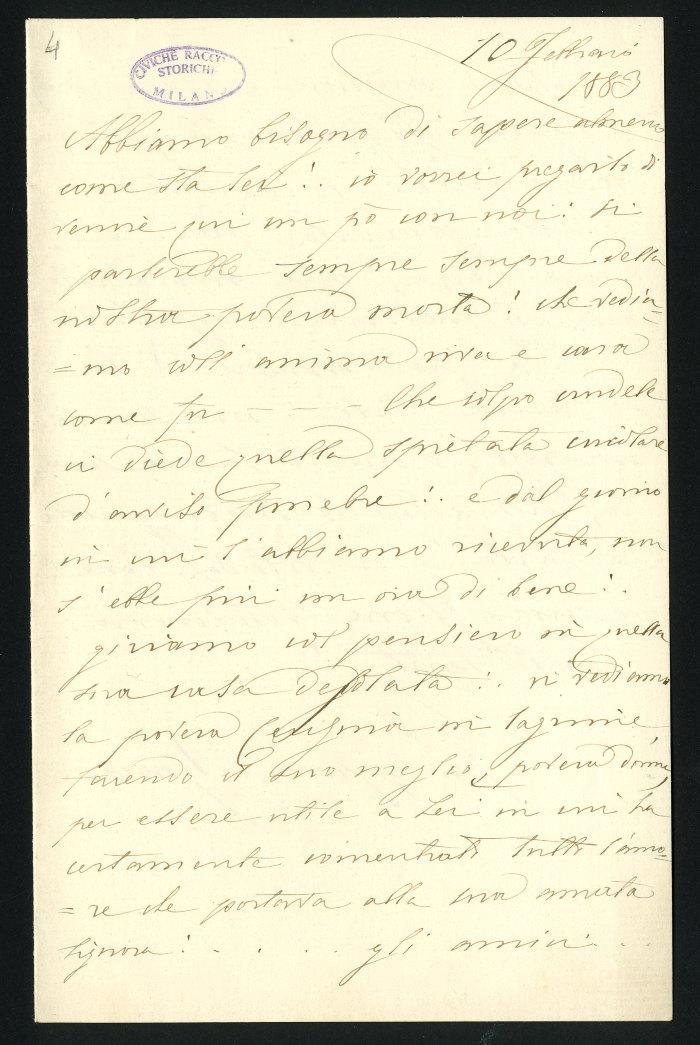 4
CIVICHE RACCOLTE
STORICHE
MILANO
10 Febbraio
1883
Abbiamo bisogno di sapere almeno
come sta lei!.. io vorrei pregarlo di
venire qui un pò con noi! si
parlerebbe sempre sempre della
nostra povera morta! che vedia=
=mo coll' anima viva e cara
come fu - - - - Che colpo crudele
ci diede quella spietata circolare
d'avviso funebre!.. e dal giorno
in cui l'abbiamo ricevuta, non
s'ebbe più un ora di bene!..
giriamo col pensiero in quella
sua casa desolata!.. vi vediamo
la povera in lagrime
facendo il suo meglio, povera donna,
per essere utile a Lei in cui ha
certamente concentrato tutto l'amo=
=re che portava alla sua amata
signora!.. . . . gli amici . .